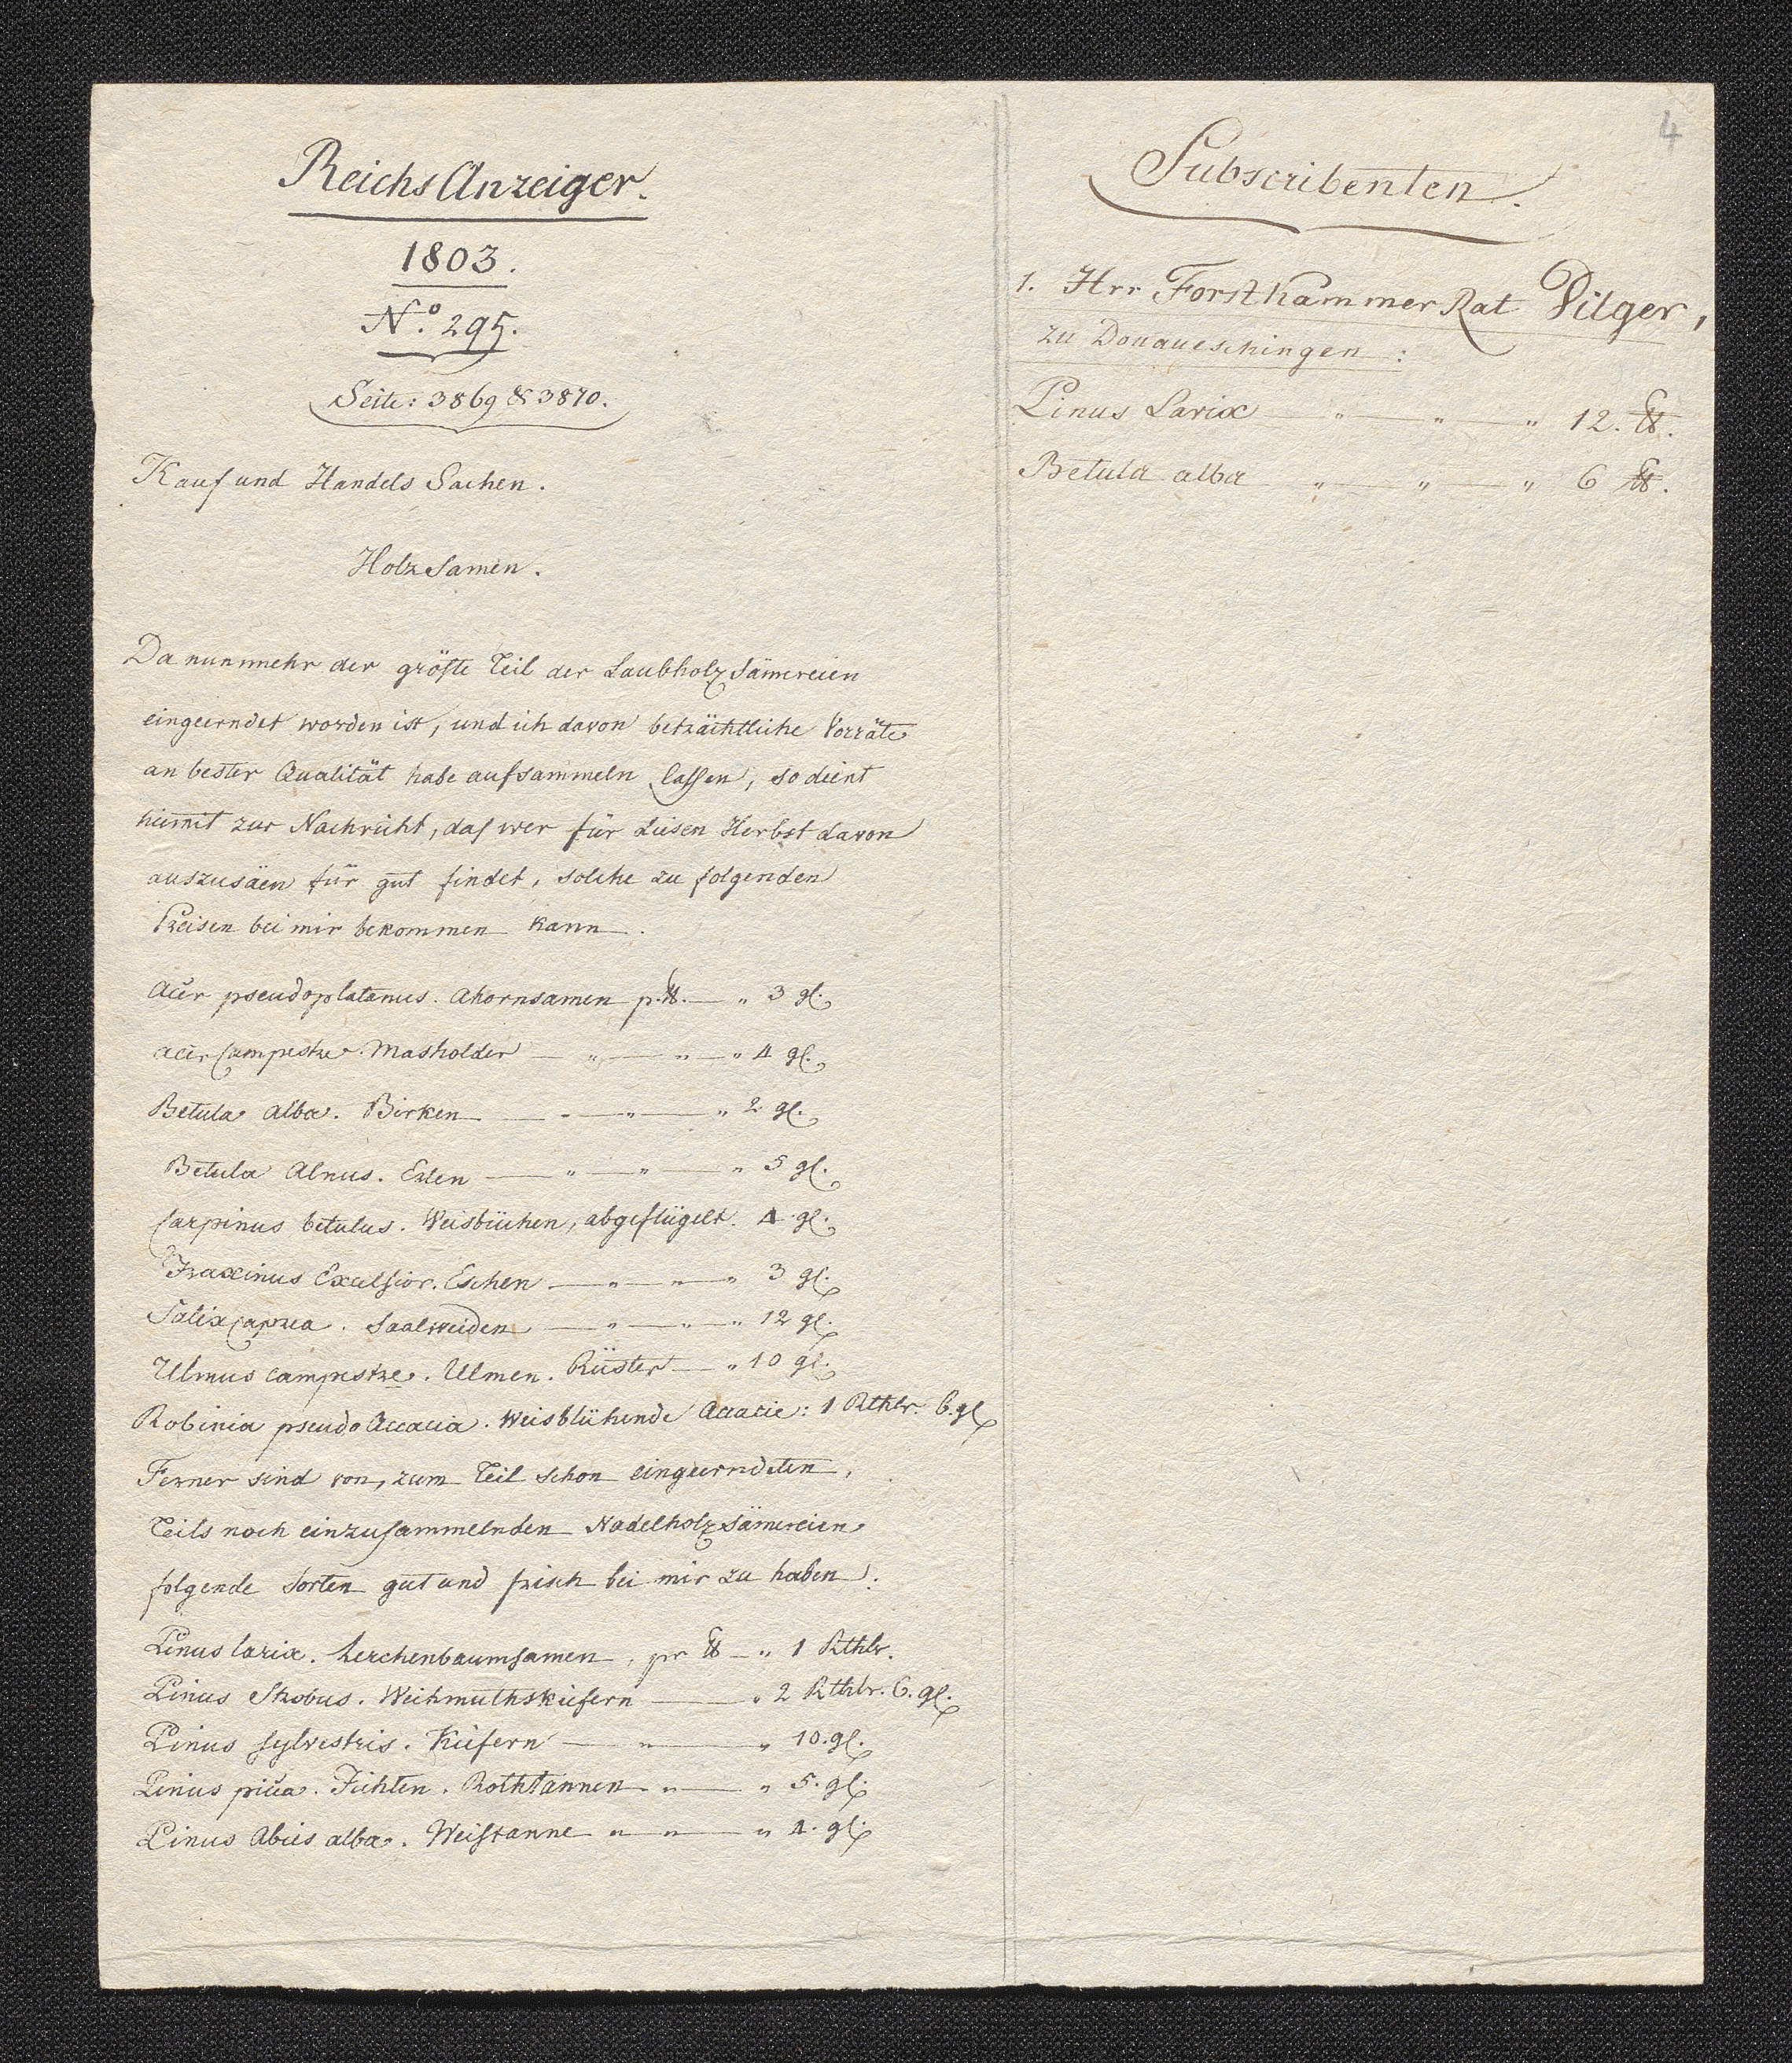 Reichs Anzeiger.
1803.
No. 295.
Seite: 3869 & 3870.
Kauf und Handels Sachen.
Holz Samen.
Da nunmehr der gröste Teil der Laubholz Sämereien
eingeerndet worden ist, und ich davon beträchtliche Vorräte
an bester Qualität habe aufsammeln lassen, so dient
hiemit zur Nachricht, das wer für diesen Herbst davon
auszusäen für gut findet, solche zu folgenden
Preisen bei mir bekommen kann.
Acer pseudoplatanus. Ahornsamen p. ℔. — " 3 gl.
acer Campestre. Masholder — " — " — " 4 gl.
Betula alba. Birken — " — " — " 2 gl.
Betula Alnus. Erlen — " — " — " 5 gl.
Carpinus betulus. Weisbüchen, abgeflügelt. 4 gl.
Fraxinus Excelsior. Eschen — " — " — " 3 gl.
Salix Caprea. Saalweiden — " — " — " 12 gl.
Ulmus campestre. Ulmen. Rüster — " 10 gl.
Robinia pseudo Accacia. Weisblühende Acacie: 1 Rthlr. 6. gl.
Ferner sind von, zum Teil schon eingeerndeten,
Teils noch einzusammelnden Nadelholz Sämereien
folgende Sorten gut und frisch bei mir zu haben:
Pinus larix. Lerchenbaumsamen, pr ℔ — " 1 Rthlr.
Pinus Strobus. Weihmuthskiefern — " 2 Rthlr. 6. gl.
Pinus sylvestris. Kiefern — " — " 10. gl.
Pinus picea. Fichten. Rothtannen — " — " 5. gl.
Pinus Abies alba. Weistanne " — " — " 4. gl.
4
Subscribenten.
1. Hrr Forstkammer Rat Pilger,
zu Donaueschingen:
Pinus Larix — " — " — " 12. ℔.
Betula alba — " — " — " 6 ℔.